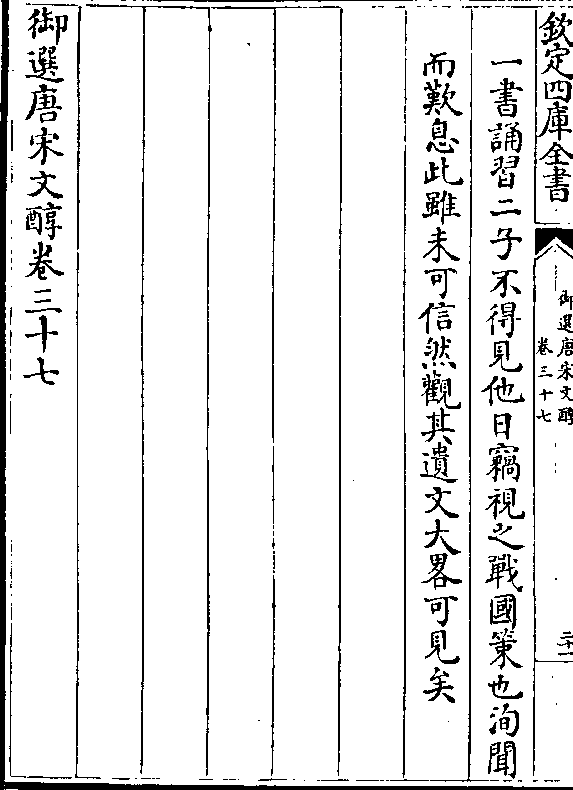 欽定四庫全書
御選唐宋文醇
卷三十七
二十一
一書誦習二子不得見他日竊視之戰國策也洵聞
而歎息此雖未可信然觀其遺文大畧可見矣
御選唐宋文醇卷三十七